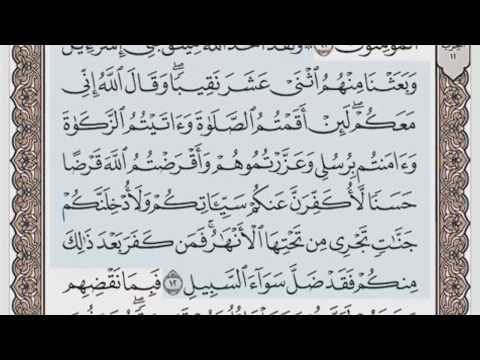 المؤمنون ۝١١ ۞ ولقد أخذ الله ميثق بني إسرءيل
الحزب
١١
وَبَعَثْنَا مِنْهُمُ ٱثْنَىْ عَشَرَ نَقِيبًا ۖ وَقَالَ ٱللَّهُ إِنِّى
مَعَكُمْ ۖ لَئِنْ أَقَمْتُمُ ٱلصَّلَوٰةَ وَءَاتَيْتُمُ ٱلزَّكَوٰةَ
وَءَامَنتُم بِرُسُلِى وَعَزَّرْتُمُوهُمْ وَأَقْرَضْتُمُ ٱللَّهَ قَرْضًا
حَسَنًا لَّأُكَفِّرَنَّ عَنكُمْ سَيِّـَٔاتِكُمْ وَلَأُدْخِلَنَّكُمْ
جَنَّٰتٍ تَجْرِى مِن تَحْتِهَا ٱلْأَنْهَٰرُ ۚ فَمَن كَفَرَ بَعْدَ ذَٰلِكَ
مِنكُمْ فَقَدْ ضَلَّ سَوَآءَ ٱلسَّبِيلِ ۝١٢ فَبِمَا نَقْضِهِم